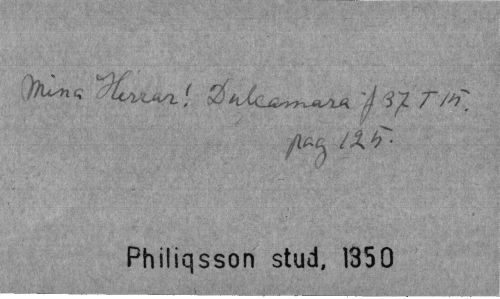 Mina Herrar! Dulcamara f 37 T 15.
pag 125.
Philiqsson stud, 1350